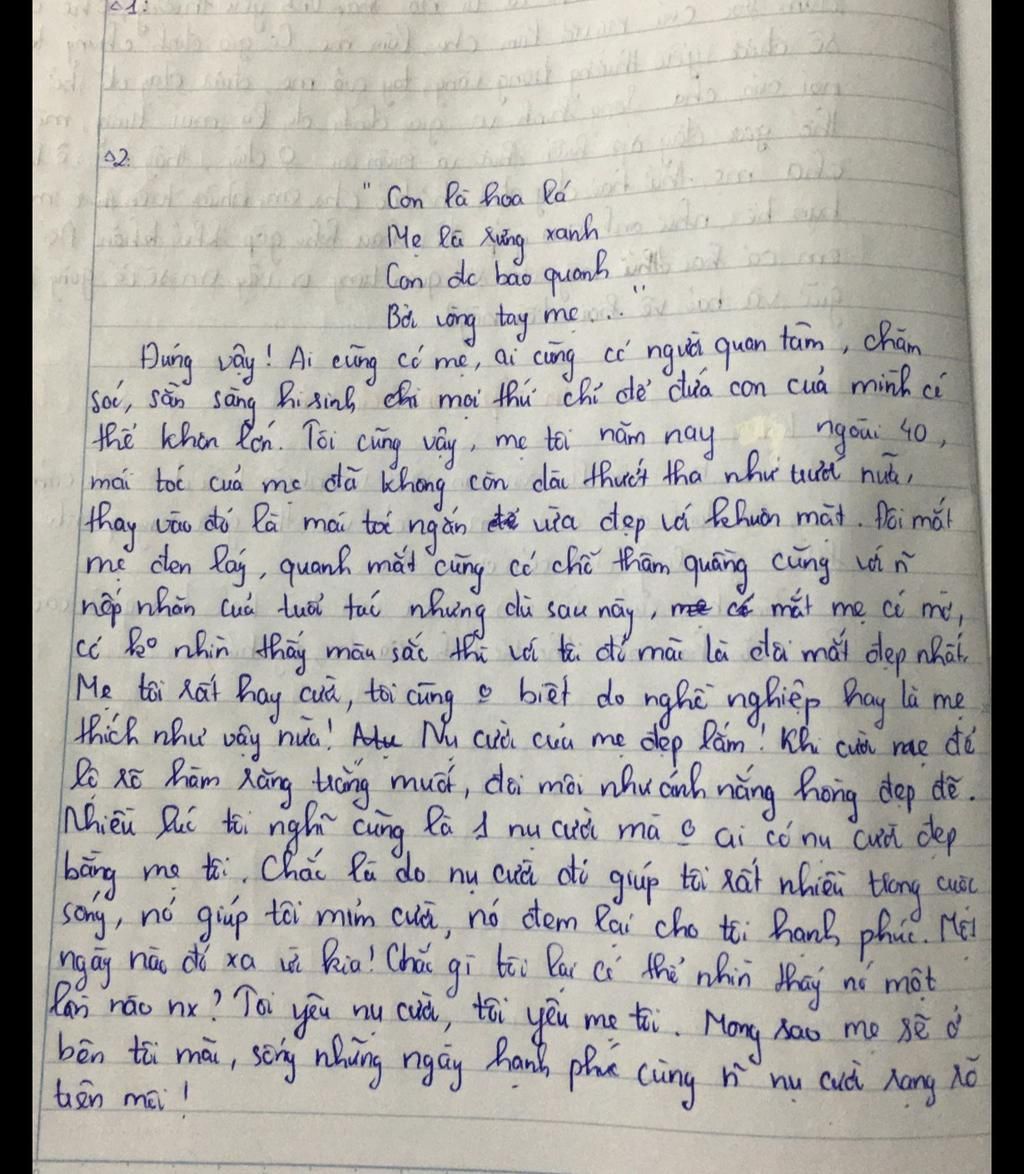 Δ1:
Δ2.
" Con là hoa lá
Mẹ là rừng xanh
Con đc bao quanh
Bởi vòng tay mẹ... "
Đúng vậy! Ai cũng có mẹ, ai cũng có người quan tâm, chăm
sóc, sẵn sàng hi sinh mọi thứ chỉ để đứa con của mình có
thể khôn lớn. Tôi cũng vậy, mẹ tôi năm nay ngoài 40,
mái tóc của mẹ đã không còn dài thướt tha như trước nữa,
thay vào đó là mái tóc ngắn vừa đẹp với khuôn mặt. Đôi mắt
mẹ đen láy, quanh mắt cũng có chỗ thâm quầng cùng với ñ
nếp nhăn của tuổi tác nhưng dù sau này, mắt mẹ có mờ,
có ko nhìn thấy màu sắc thì với tôi đó mãi là đôi mắt đẹp nhất.
Mẹ tôi rất hay cười, tôi cũng o biết do nghề nghiệp hay là mẹ
thích như vậy nữa! Nụ cười của mẹ đẹp lắm! Khi cười mẹ để
lộ rõ hàm răng trắng muốt, đôi môi như ánh nắng hồng đẹp đẽ.
Nhiều lúc tôi nghĩ cũng là 1 nụ cười mà o ai có nụ cười đẹp
bằng mẹ tôi. Chắc là do nụ cười đó giúp tôi rất nhiều trong cuộc
sống, nó giúp tôi mỉm cười, nó đem lại cho tôi hạnh phúc. Một
ngày nào đó xa vời kia! Chắc gì tôi lại có thể nhìn thấy nó một
lần nào nx? Tôi yêu nụ cười, tôi yêu mẹ tôi. Mong sao mẹ sẽ ở
bên tôi mãi, sống những ngày hạnh phúc cùng ñ nụ cười rạng rỡ
trên môi!